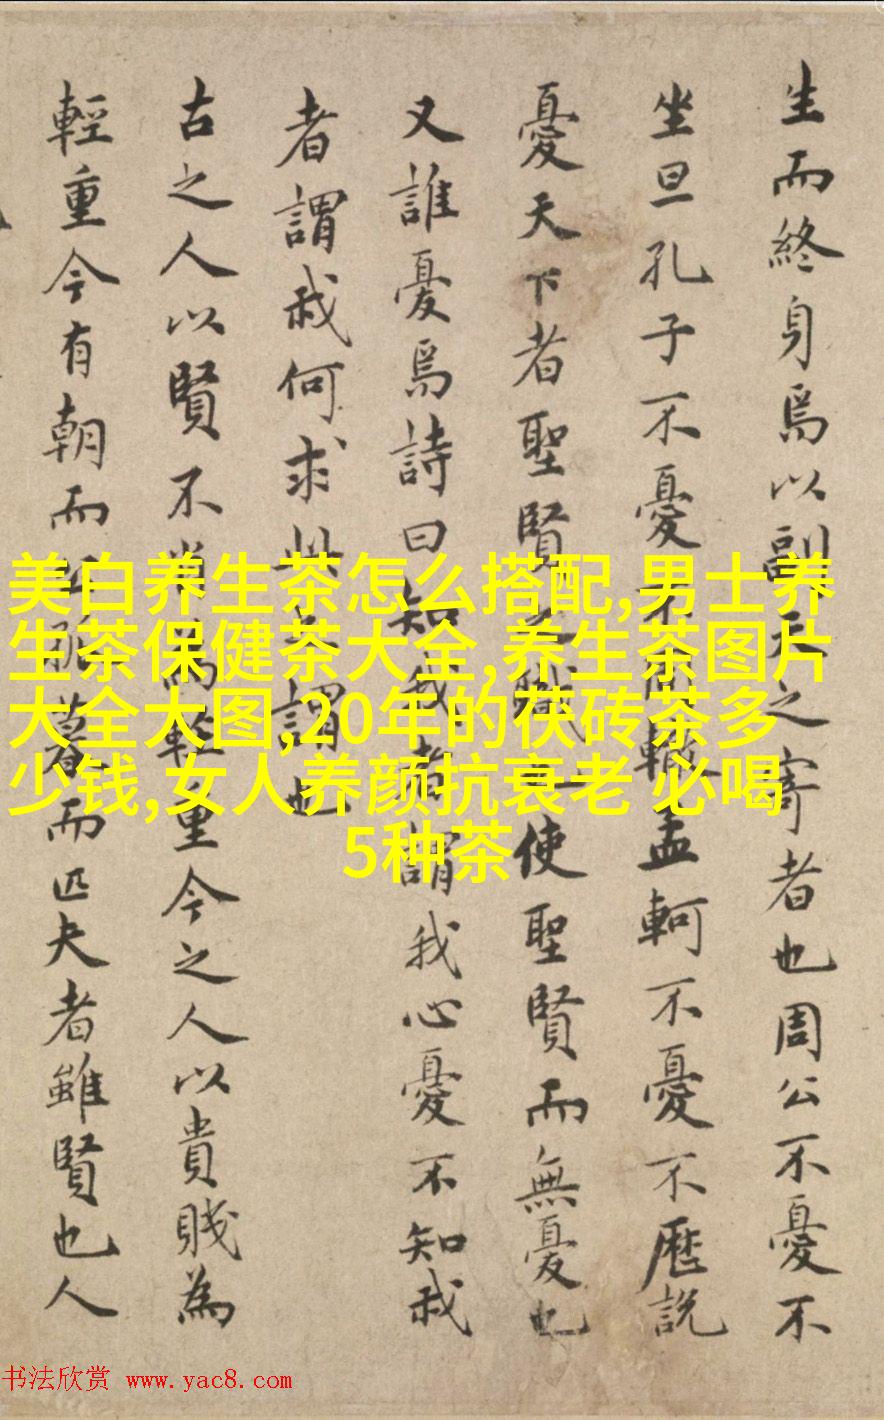 生而終身焉以副天之寄者也周公不憂不
坐旦孔子不憂不周轍孟軻不憂不歷說
憂天下者聖賢之職也使聖賢而無憂也
又誰憂焉詩曰知我者謂我心憂不知我
者謂我何求此之謂也
古之人以賢不肖為輕重今之人以貴賤為
輕重今有朝而公孤暮而匹夫者雖賢也人
美白养生茶怎么搭配,男士养
生茶保健茶大全,养生茶图片
大全大图,20年的茯砖茶多
少钱,女人养颜抗衰老 必喝
5种茶
书法欣赏 www.yac8.com